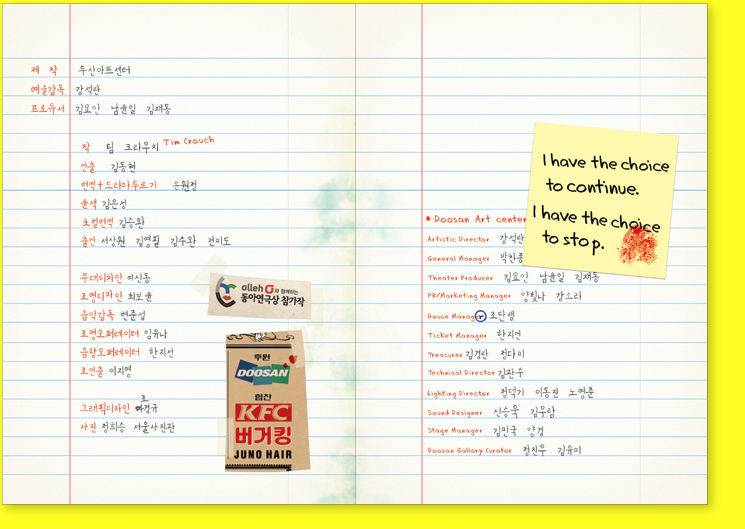 제 작 두산아트센터
예술감독 강석란
프로듀서 김요인 남윤일 김재동
작 팀 크라우치 Tim Crouch
연출 김동현
번역+드라마투르기 손원정
윤색 김은성
초벌번역 김승완
출연 서상원 김영필 김주완 전미도
무대디자인 여신동
조명디자인 최보윤
음악감독 변준섭
조명오퍼레이터 임유나
음향오퍼레이터 한지선
조연출 이지영
그래픽디자인 조경규
사진 정희승 서울사진관
olleh 와 함께하는
동아연극상 참가작
후원
DOOSAN
협찬
KFC
버거킹
JUNO HAIR
I have the choice
to continue.
I have the choice
to stop.
Doosan Art center
Artistic Director 강석란
General Manager 박찬종
Theater Producer 김요인 남윤일 김재동
PR/Marketing Manager 양휘나 강으라
House Manager 조단생
Ticket Manager 한지연
Treasurer 김경란 정다미
Technical Director 김관수
Lighting Director 정덕기 이동진 노명준
Sound Designer 신승욱 김우람
Stage Manager 김민국 양경
Doosan Gallary Curator 정진우 김유미